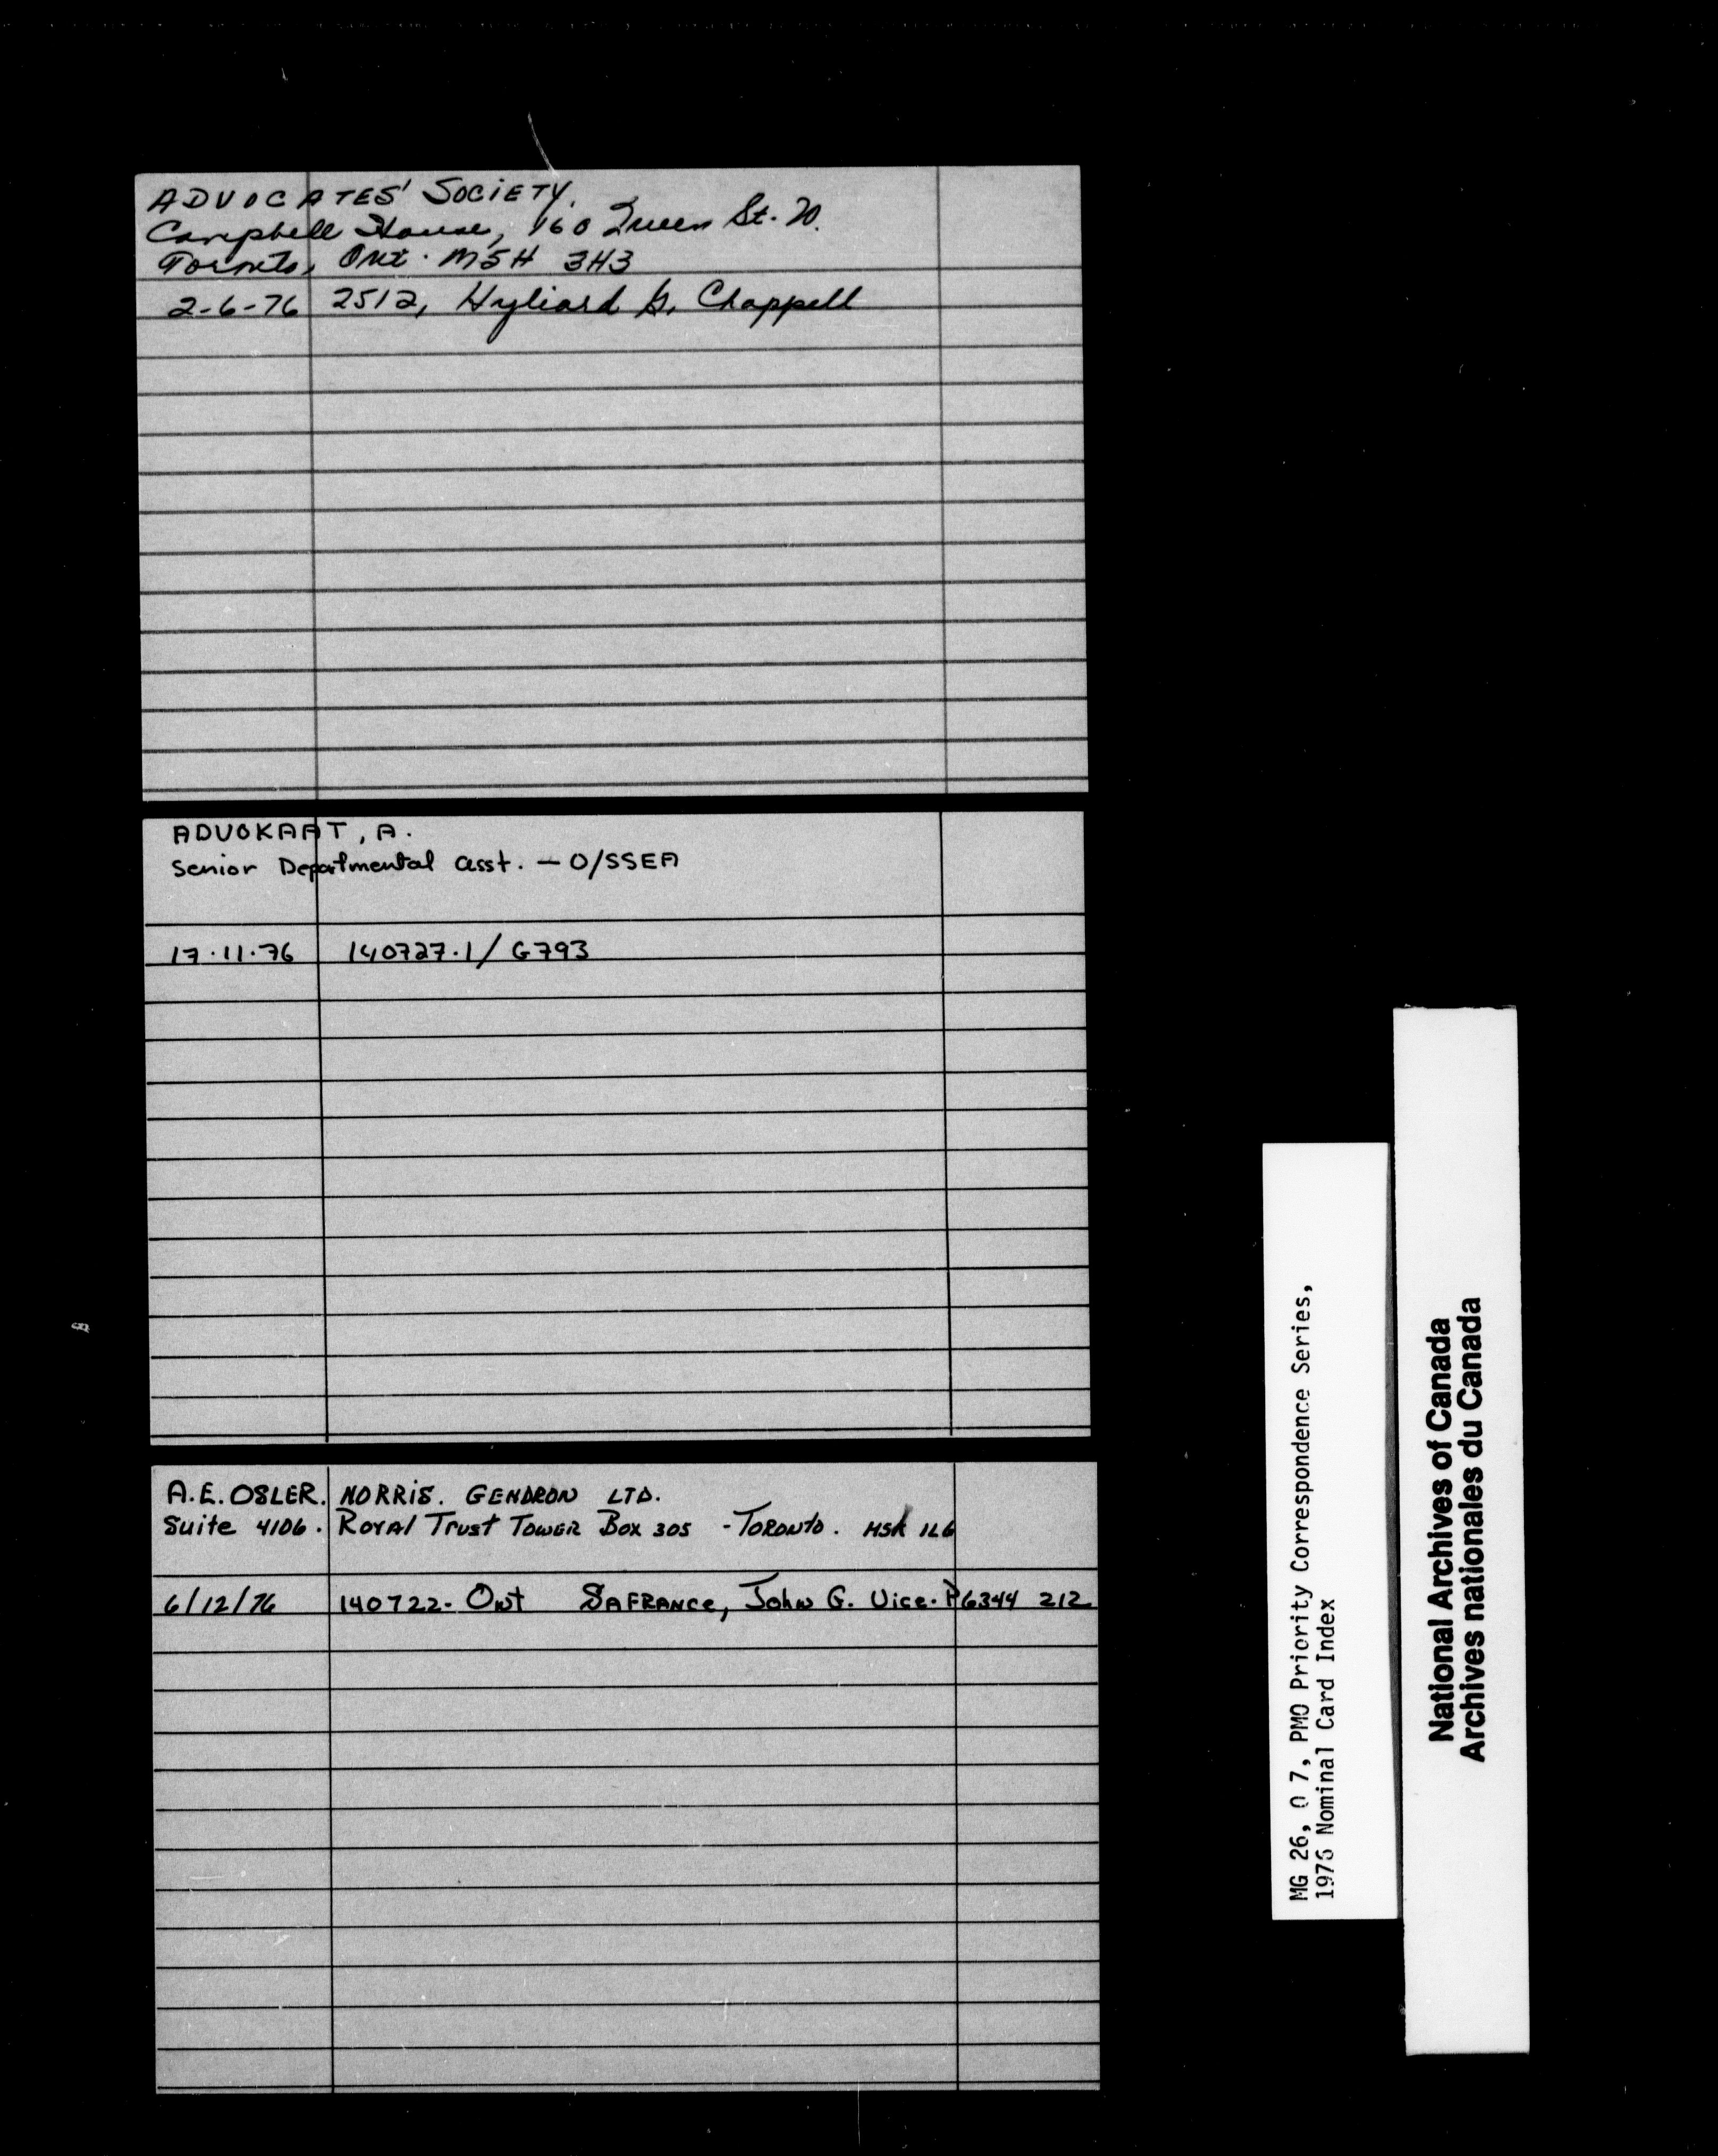 ADVOCATES' SOCIETY.
Campbell House, 160 Queen St. W.
Toronto, Ont. M5H 3H3
2-6-76 2512, Hyliard G. Chappell
ADVOKAAT, A.
Senior Departmental asst. — O/SSEA
17.11.76 140727.1/G793
A.E. OSLER. NORRIS. GENDRON LTD.
Suite 4106. Royal Trust Tower Box 305 - TORONTO. M5K 1L6
6/12/76 140722- Ont SAFRANCE, John G. Vice. P6344 212
MG 26, O 7, PMO Priority Correspondence Series,
1976 Nominal Card Index
National Archives of Canada
Archives nationales du Canada